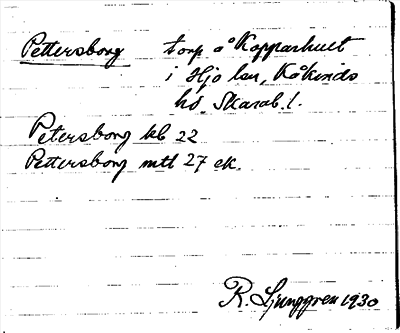 Pettersborg torp å Kopparhult
i Hjo lsn, Kåkinds
hd. Skarab. l.
Petersborg kb 22
Pettersborg mtl 27 ek.
R. Ljunggren 1930